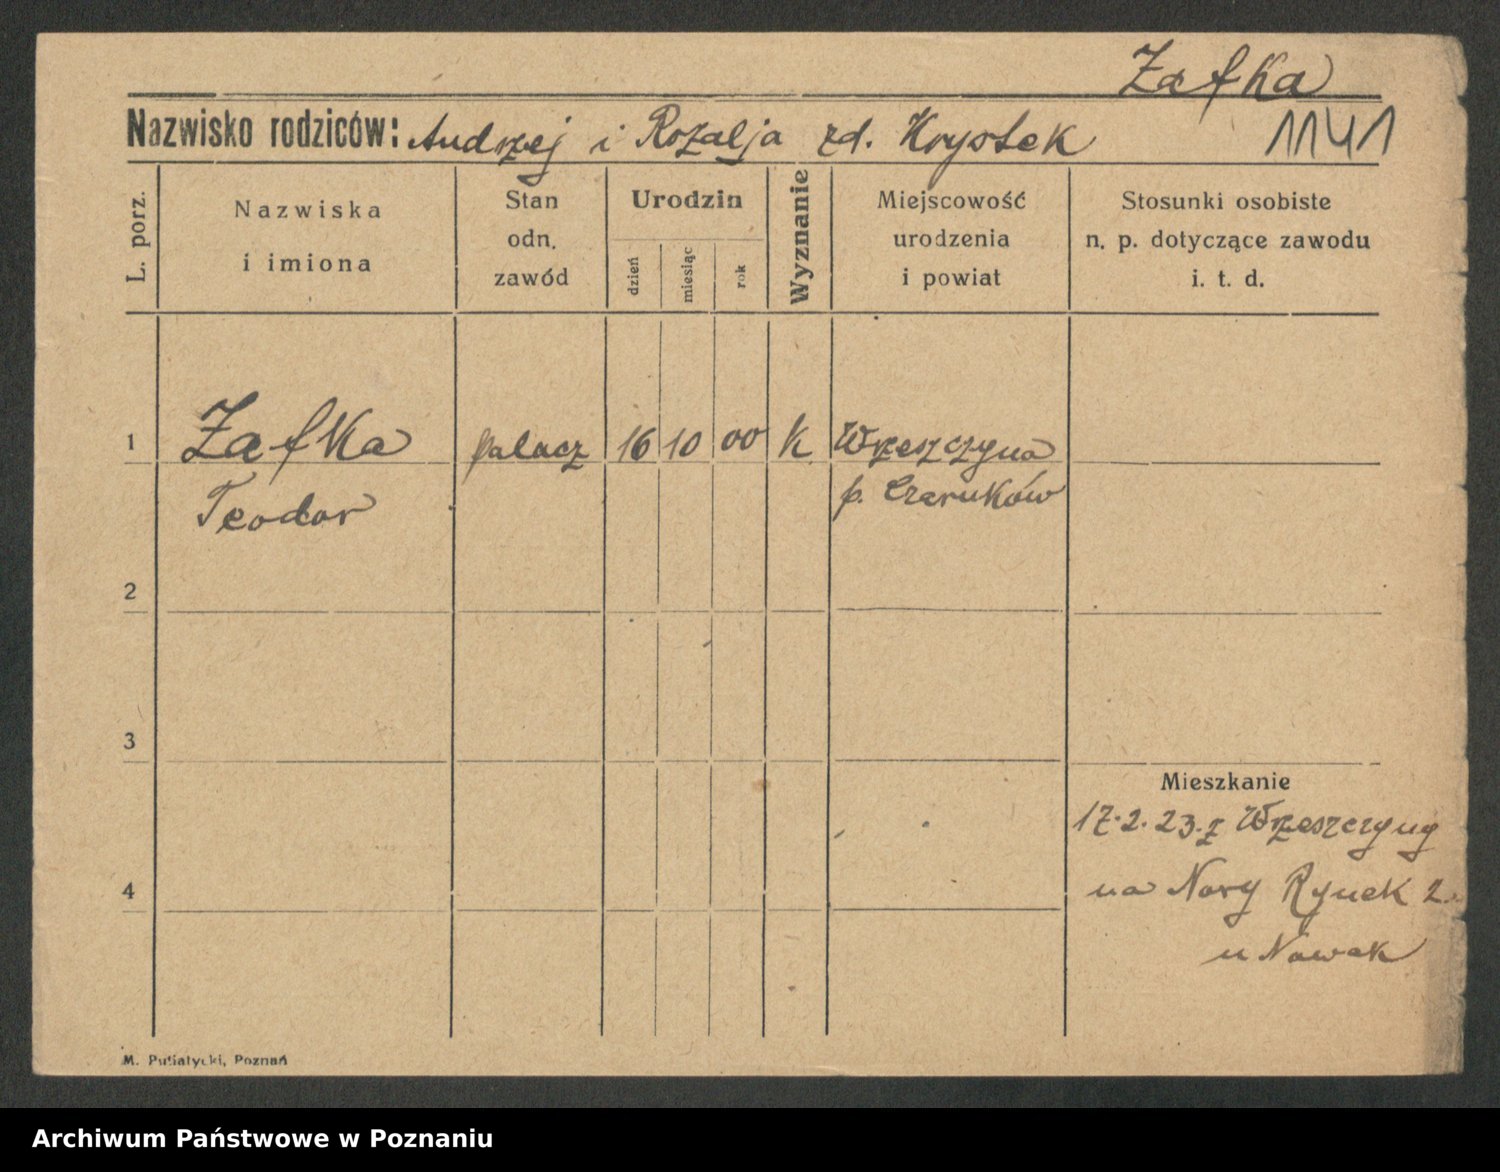 Zafka
Nazwisko rodziców: Andrzej i Rozalja zd. Krystek
1141
L. porz.
Nazwiska
i imiona
Stan
odn.
zawód
Urodzin
dzień
miesiąc
rok
Wyznanie
Miejscowość
urodzenia
i powiat
Stosunki osobiste
n. p. dotyczące zawodu
i. t. d.
1 Zafka palacz 16 10 00 k Wrzeszczyna
Teodor p. Czarnków
2
3
Mieszkanie
17.2.23. z Wrzeszczyny
na Nowy Rynek 2.
4
u Nowak
M. Putiatycki, Poznań
Archiwum Państwowe w Poznaniu